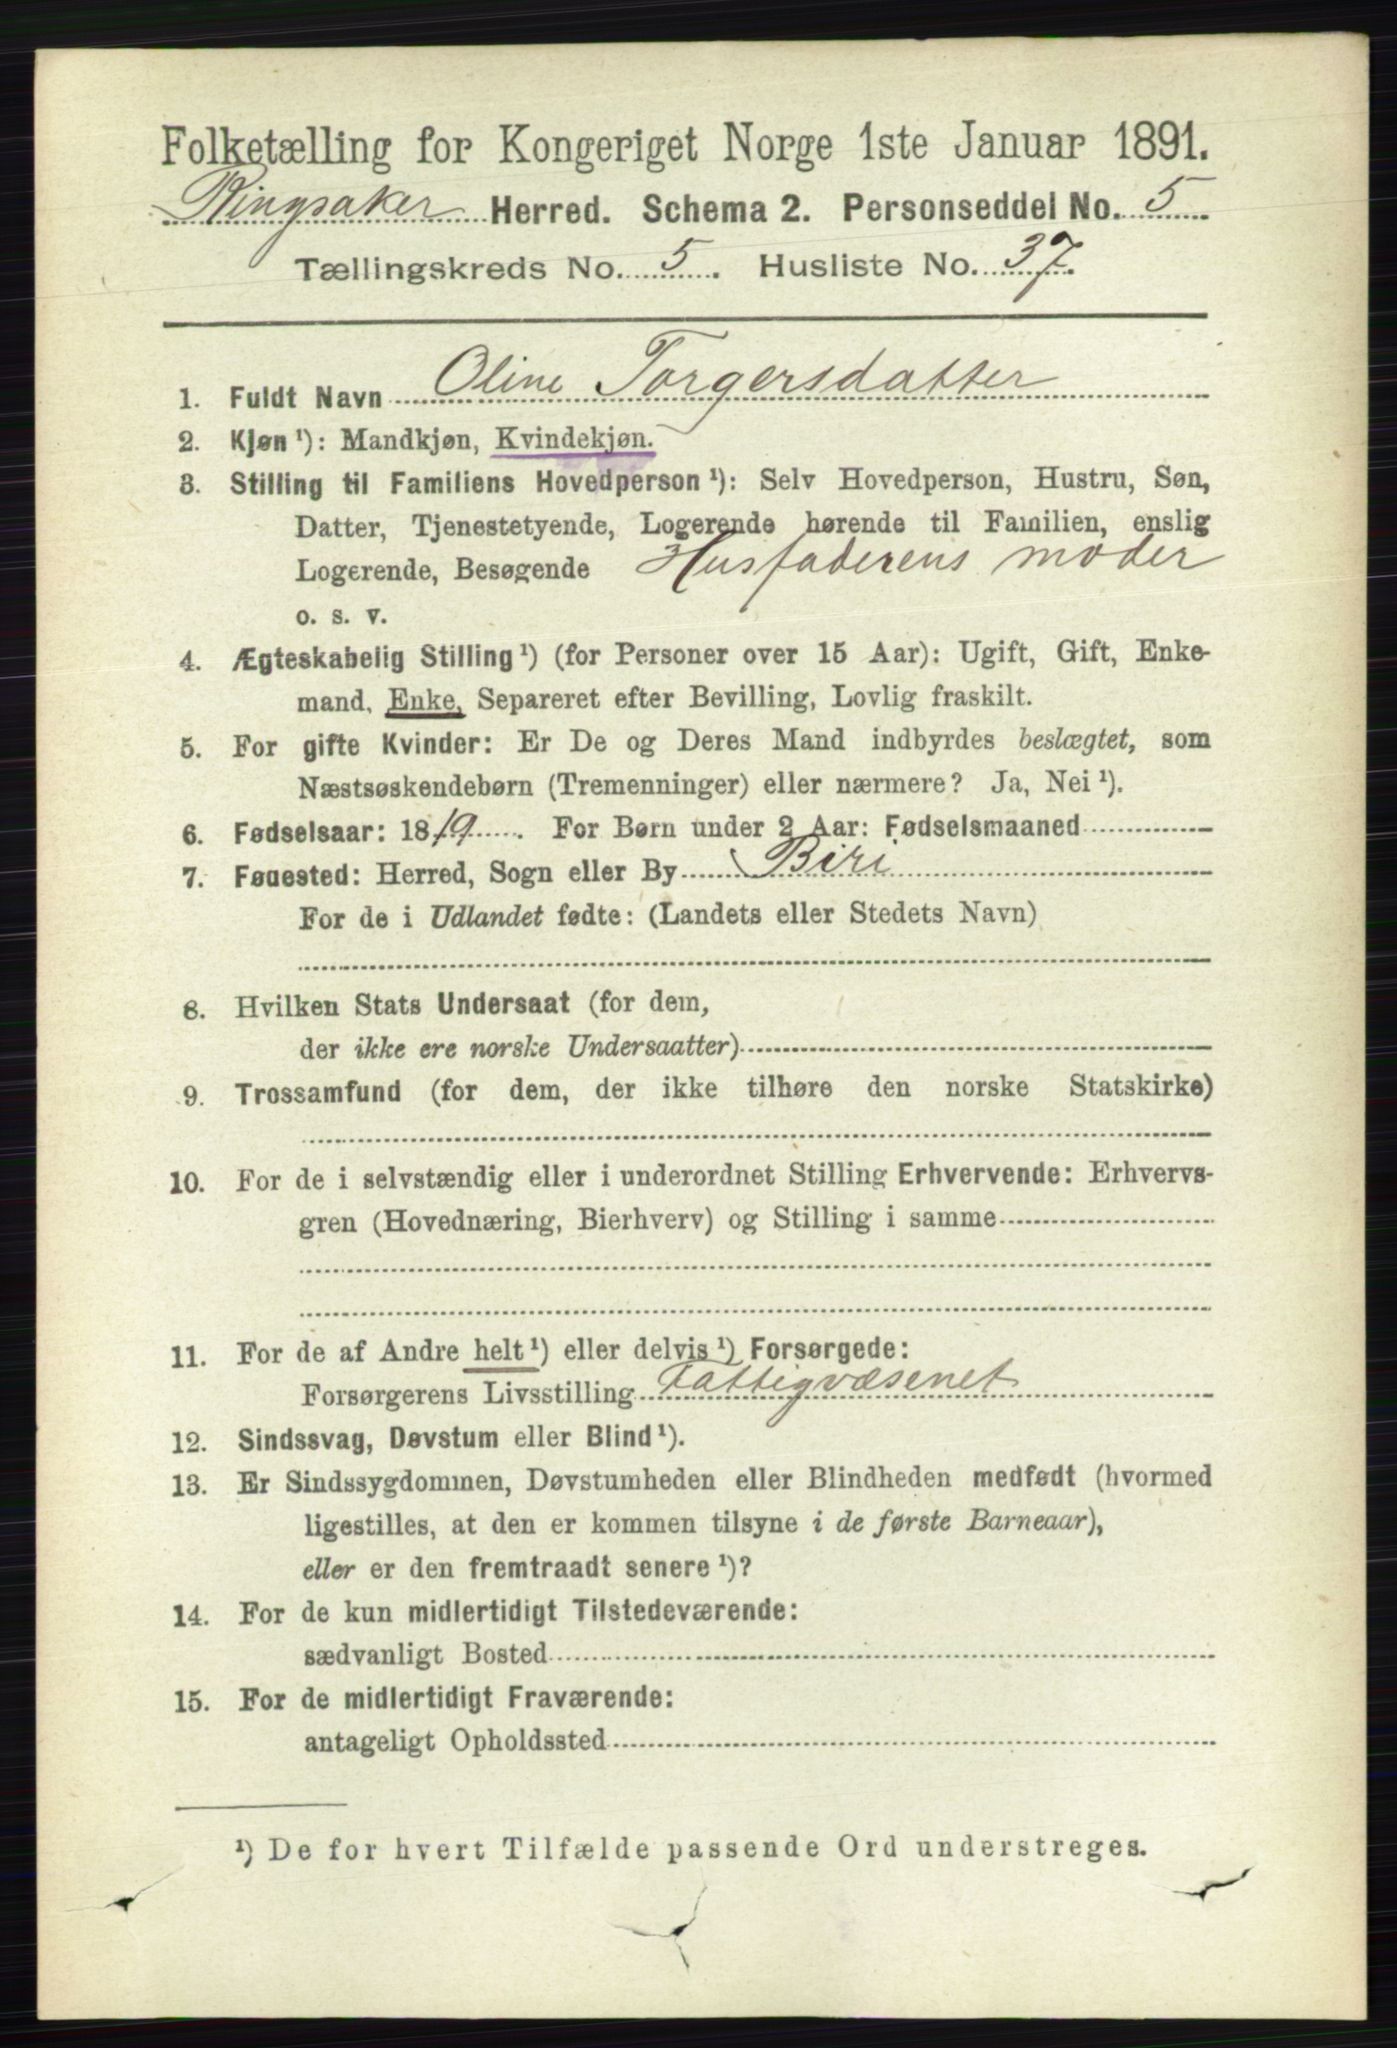 Folketælling for Kongeriget Norge 1ste Januar 1891.
Ringsaker Herred. Schema 2. Personseddel No. 5
Tællingskreds No. 5. Husliste No. 37.
1. Fuldt Navn Oline Torgersdatter
2. Kjøn¹): Mandkjøn, Kvindekjøn.
3. Stilling til Familiens Hovedperson¹): Selv Hovedperson, Hustru, Søn,
Datter, Tjenestetyende, Logerende hørende til Familien, enslig
Logerende, Besøgende Husfaderens moder
o. s. v.
4. Ægteskabelig Stilling¹) (for Personer over 15 Aar): Ugift, Gift, Enke-
mand, Enke, Separeret efter Bevilling, Lovlig fraskilt.
5. For gifte Kvinder: Er De og Deres Mand indbyrdes beslægtet, som
Næstsøskendebørn (Tremenninger) eller nærmere? Ja, Nei¹).
6. Fødselsaar: 1819. For Børn under 2 Aar: Fødselsmaaned
7. Fødested: Herred, Sogn eller By Biri
For de i Udlandet fødte: (Landets eller Stedets Navn)
8. Hvilken Stats Undersaat (for dem,
der ikke ere norske Undersaatter)
9. Trossamfund (for dem, der ikke tilhøre den norske Statskirke)
10. For de i selvstændig eller i underordnet Stilling Erhvervende: Erhvervs-
gren (Hovednæring, Bierhverv) og Stilling i samme
11. For de af Andre helt¹) eller delvis¹) Forsørgede:
Forsørgerens Livsstilling Fattigvæsenet
12. Sindssvag, Døvstum eller Blind¹).
13. Er Sindssygdommen, Døvstumheden eller Blindheden medfødt (hvormed
ligestilles, at den er kommen tilsyne i de første Barneaar),
eller er den fremtraadt senere¹)?
14. For de kun midlertidigt Tilstedeværende:
sædvanligt Bosted
15. For de midlertidigt Fraværende:
antageligt Opholdssted
¹) De for hvert Tilfælde passende Ord understreges.